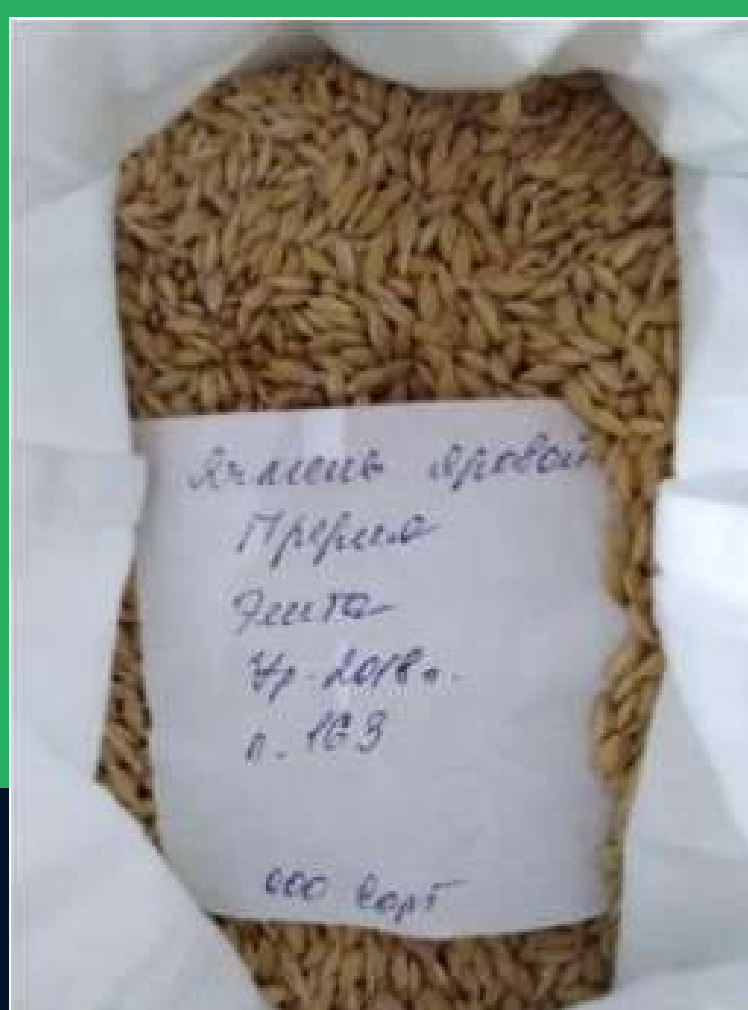 Ячмень яровой
Прерия
Элита
Ур. 2018 г.
п. 163
ООО Сорт